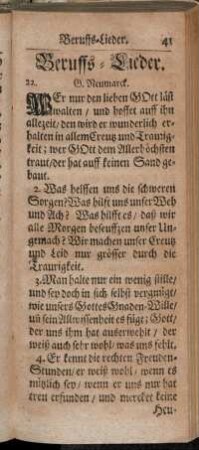 Beruffs-Lieder. 41
Beruffs-Lieder.
22. G. Neumarck.
WEr nur den lieben GOtt läst
walten / und hoffet auff ihn
allezeit / den wird er wunderlich er-
halten in allem Creutz und Traurig-
keit; wer GOtt dem Allerhöchsten
traut / der hat auff keinen Sand ge-
baut.
2. Was helffen uns die schweren
Sorgen? Was hilft uns unser Weh
und Ach? Was hilfft es / daß wir
alle Morgen beseuffzen unser Un-
gemach? Wir machen unser Creutz
und Leid nur grösser durch die
Traurigkeit.
3. Man halte nur ein wenig stille /
und sey doch in sich selbst vergnügt /
wie unsers Gottes Gnaden-Wille /
uñ sein Allwissenheit es fügt; Gott /
der uns ihm hat auserwehlt / der
weiß auch sehr wohl / was uns fehlt.
4. Er kennt die rechten Freuden-
Stunden / er weiß wohl / wenn es
nützlich sey / wenn er uns nur hat
treu erfunden / und mercket keine
Heu-